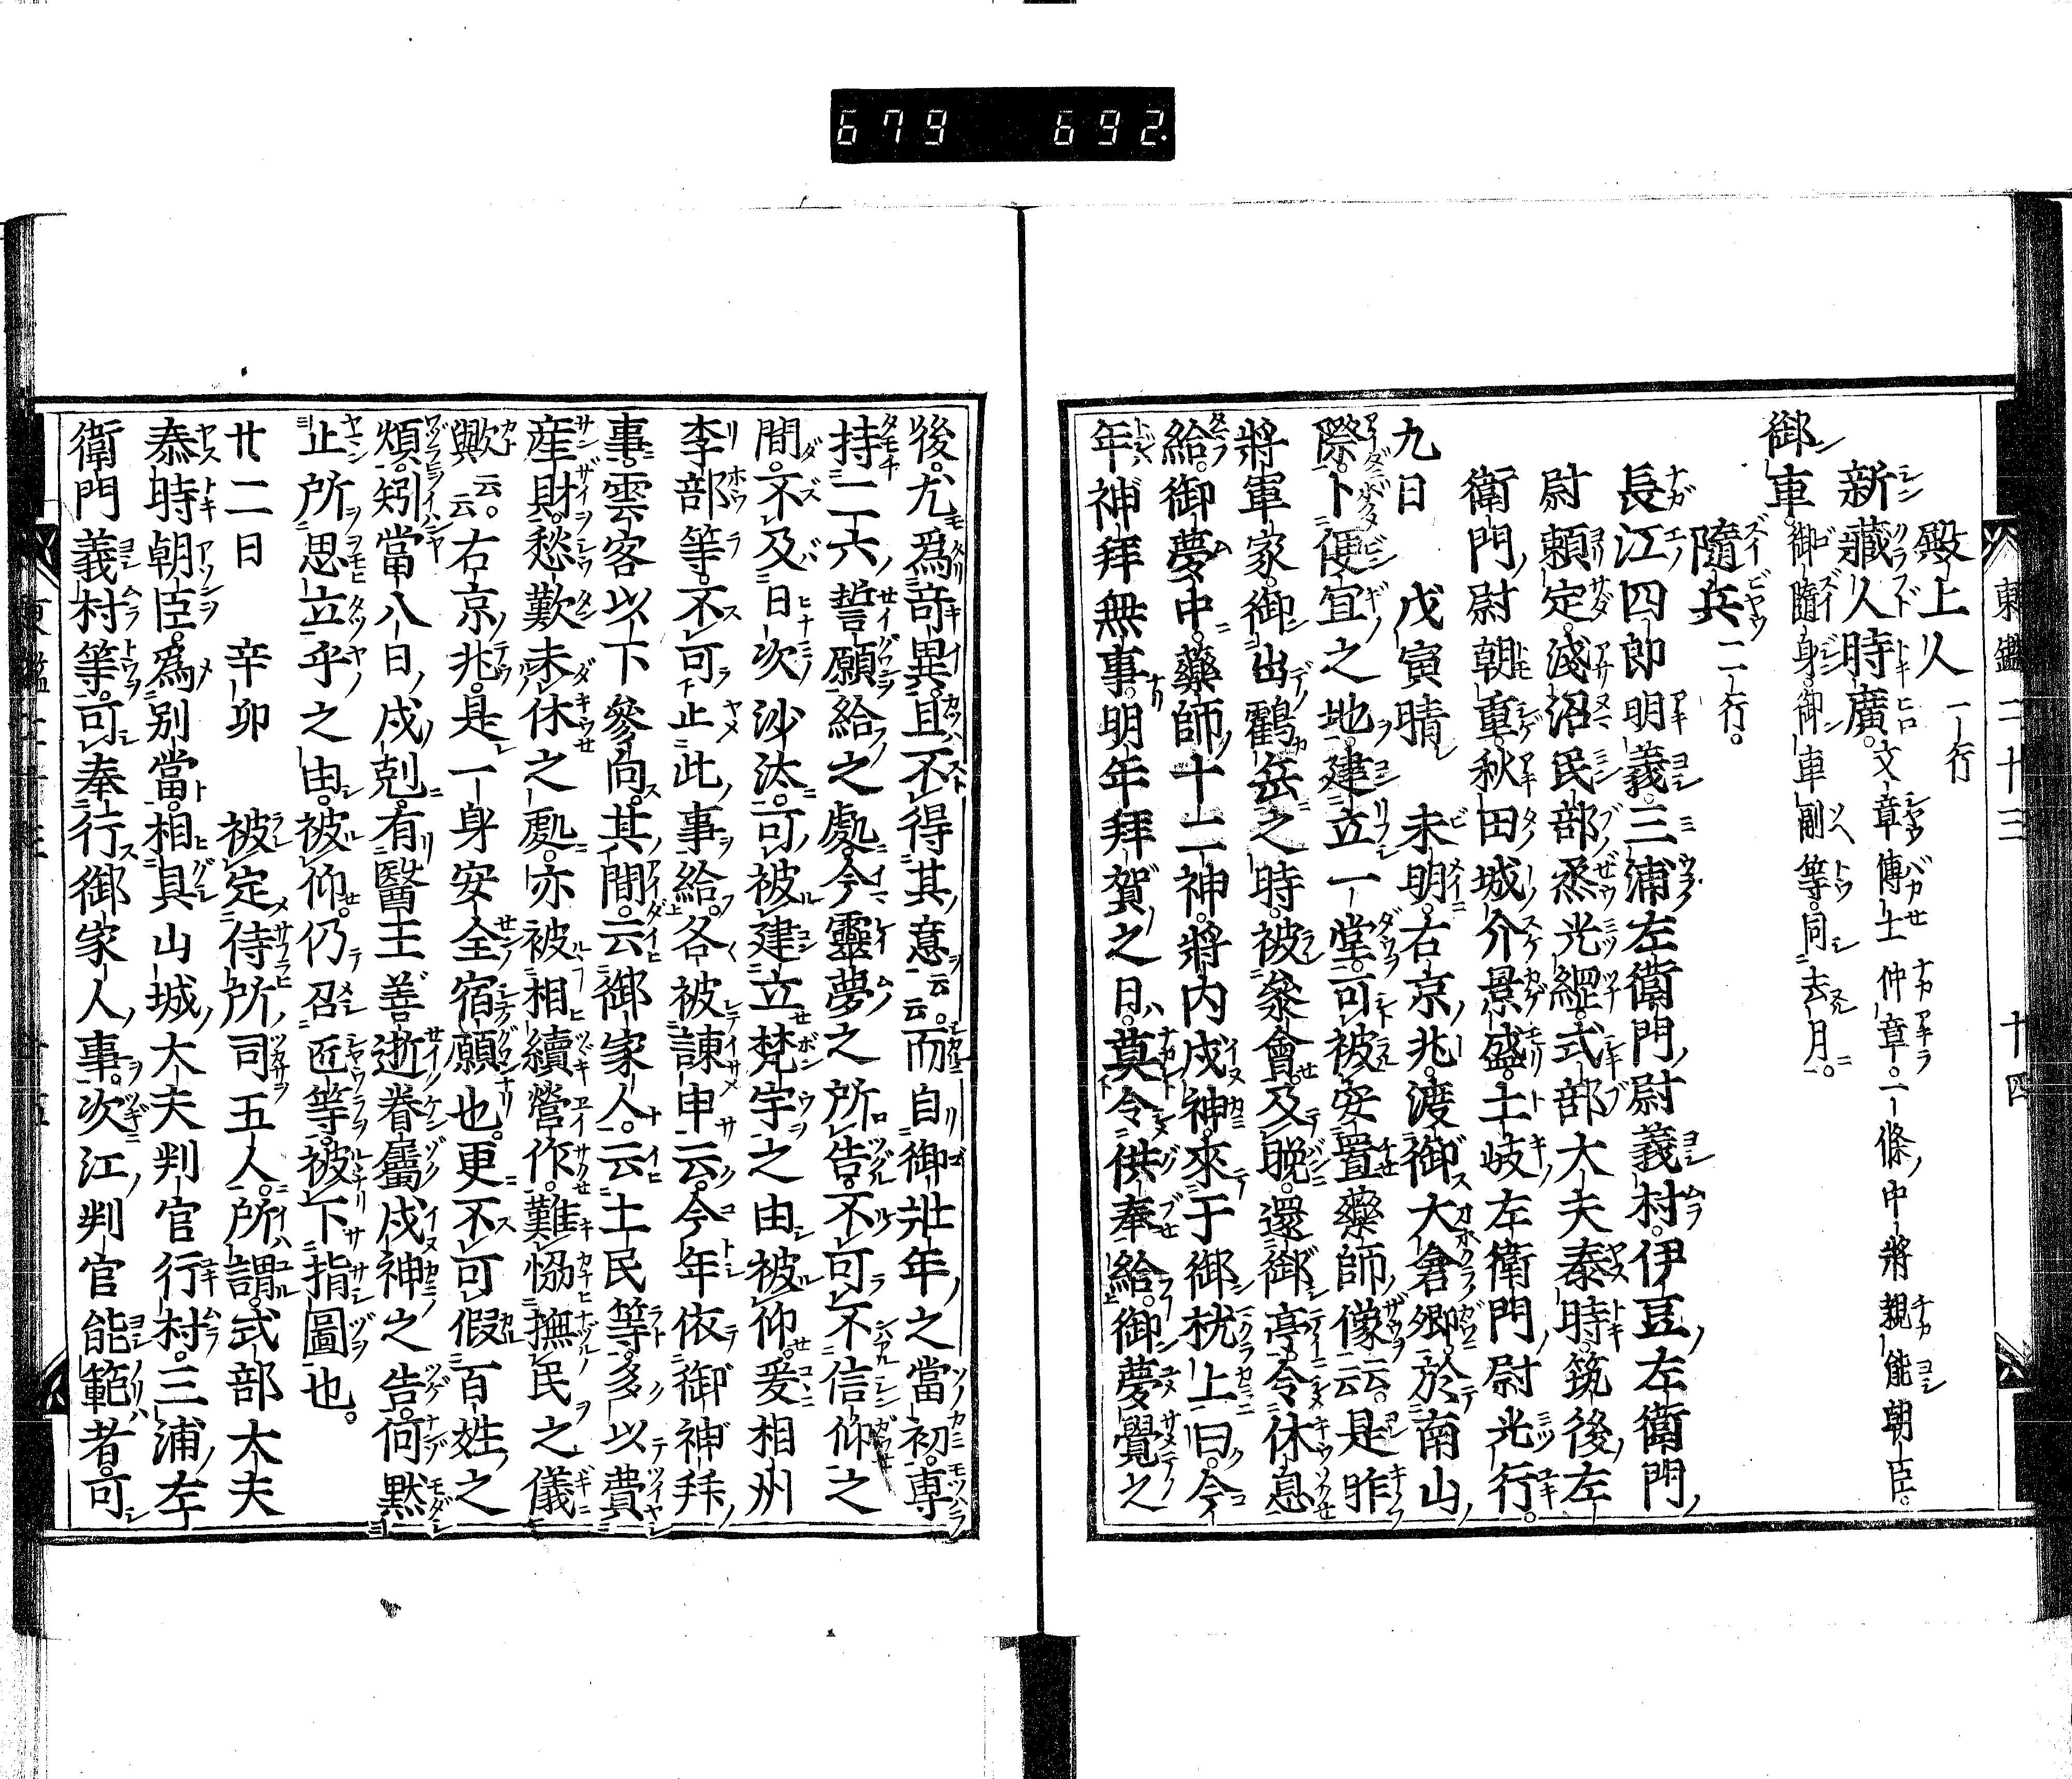 679 692
東鑑二十三 十四
殿上人一行
新藏人時廣。文章博士仲章。一條中將親能朝臣。
御車。御隨身。御車副等。同去月。
隨兵二行。
長江四郎明義。三浦左衛門尉義村。伊豆左衛門
尉頼定。淺沼民部烝光綱。式部大夫泰時。筑後左
衛門尉朝重。秋田城介景盛。土岐左衛門尉光行。
九日 戊寅晴 未明。右京兆。渡御大倉郷。於南山
際。卜便宜之地。建立一堂。可被安置藥師像云。是昨
將軍家。御出鶴岳之時。被參會。及晚。還御亭。令休息
給。御夢中。藥師十二神。將内戌神。來于御枕上曰。今
年神拜無事。明年拜賀之日。莫令供奉給。御夢覺之
後。尤爲竒異。且不得其意云云。而自御壯年之當初。専
持二六誓願給之處。今靈夢之所告。不可不信仰之
間。不及日次沙汰。可被建立梵宇之由。被仰。爰相州
李部等。不可止此事給。各被諫申云。今年依御神拜
事。雲客以下參向。其間。云御家人。云土民等。多以費
産財。愁歎未休之處。亦被相續營作。難恊撫民之儀
歟云云。右京兆。是一身安全宿願也。更不可假百姓之
煩。矧當八日戌剋。有醫王善逝眷屬戌神之告。何黙
止所思立乎之由。被仰。仍召匠等。被下指圖也。
廿二日 辛卯 被定侍所司五人。所謂。式部大夫
泰時朝臣。爲別當。相具山城大夫判官行村。三浦左
衛門義村等。可奉行御家人事。次江判官能範者。可